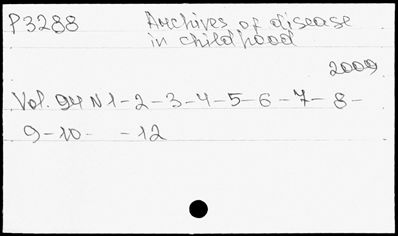 P3288 Archives of disease
in childhood
2009
Vol. 94 N 1-2-3-4-5-6-7-8-
9-10- -12